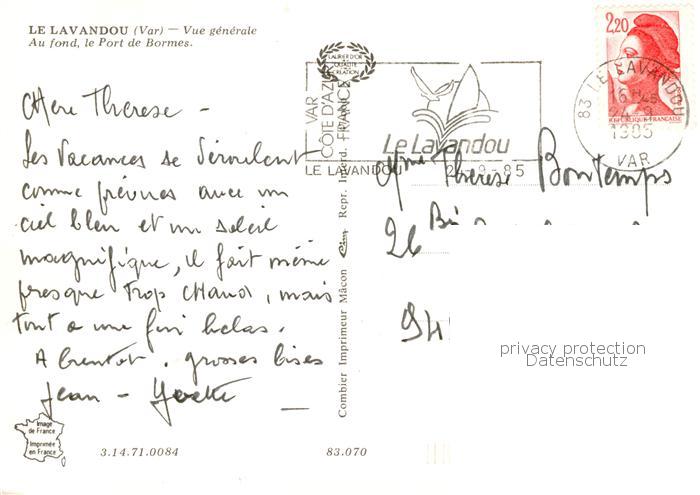 LE LAVANDOU (Var) — Vue générale
Au fond, le Port de Bormes.
Chere Therese –
Les Vacances se déroulent
comme prévues avec un
ciel bleu et un soleil
magnifique, il fait même
presque trop chaud, mais
tout a une fin helas.
A bientot. grosses bises
Jean – Yvette
Image
de France
Imprimée
en France
3.14.71.0084
83.070
Combier Imprimeur Mâcon Cim Repr. Interd.
LAURIER D'OR
QUALITE
CREATION
VAR
CÔTE D'AZUR
FRANCE
Le Lavandou
LE LAVANDOU
-9-85
2,20
REPUBLIQUE FRANCAISE
83 LE LAVANDOU
16 H
1985
VAR
Mme Therese Bontemps
26
94
privacy protection
Datenschutz